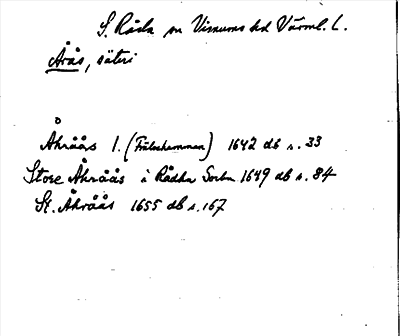 S. Råda sn Visnums hd Värml. L.
Årås, säteri
Åhråås 1. (Frälsehemman) 1642 db s. 33
Store Åhråås i Rådha Sockn 1649 db s. 84
St. Åhråås 1655 db s. 167